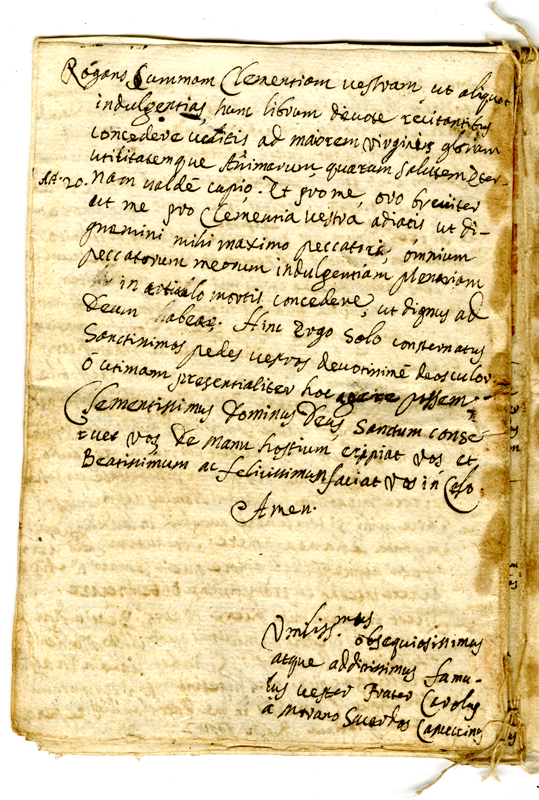 Rogans Summam Clementiam vestram, ut aliquot
indulgentias, hunc librum devote recitantibus
concedere velitis ad maiorem virginis gloriam
utilitatemque Animarum, quarum salutem æter-
Act. 20. nam valdé cupio. Et pro me, oro breviter
ut me pro Clementia vestra adiatis ut di-
gnemini mihi maximo peccatori, omnium
peccatorum meorum indulgentiam plenariam
in articulo mortis concedere, ut dignus ad
Deum habear. Hinc Ergo solo consternatus
Sanctissimos pedes vestros devotissimé deosculor.
ó utinam presentialiter hoc agere possem
Clementissimus Dominus Deus, Sanctum conse-
rvet vos, De manu hostium eripiat vos et
Beatissimum ac felicissimum faciat vos in Celo
Amen.
Vmiliss.mus
obsequiosissimus
atque addictissimus famu-
lus vester Frater Carolus
á Morano Sacerdos Capuccinus